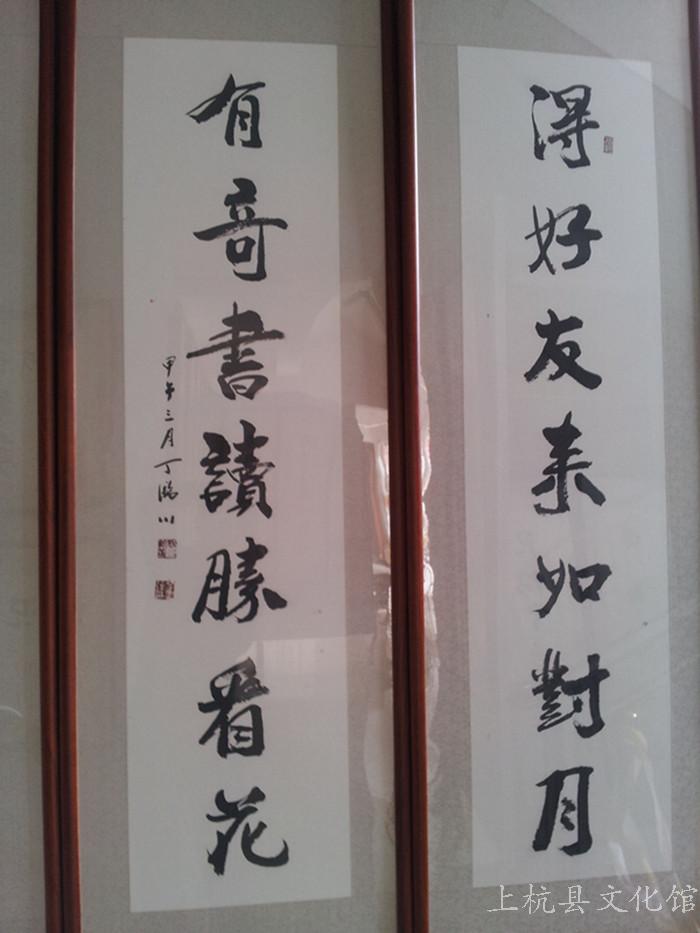 得好友来如對月
有奇書讀勝看花
甲午三月丁临川
上杭县文化馆